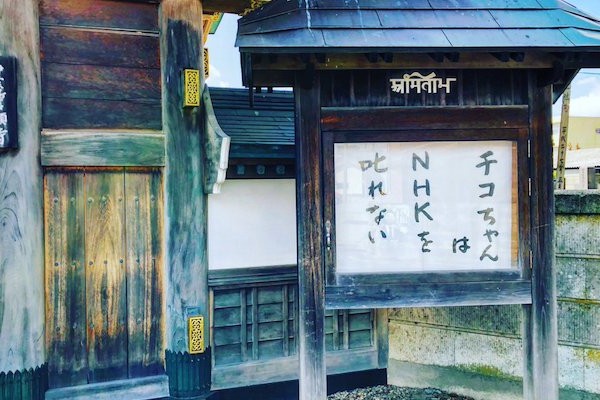 अमिताभ
チコちゃん
は
NHKを
叱れない